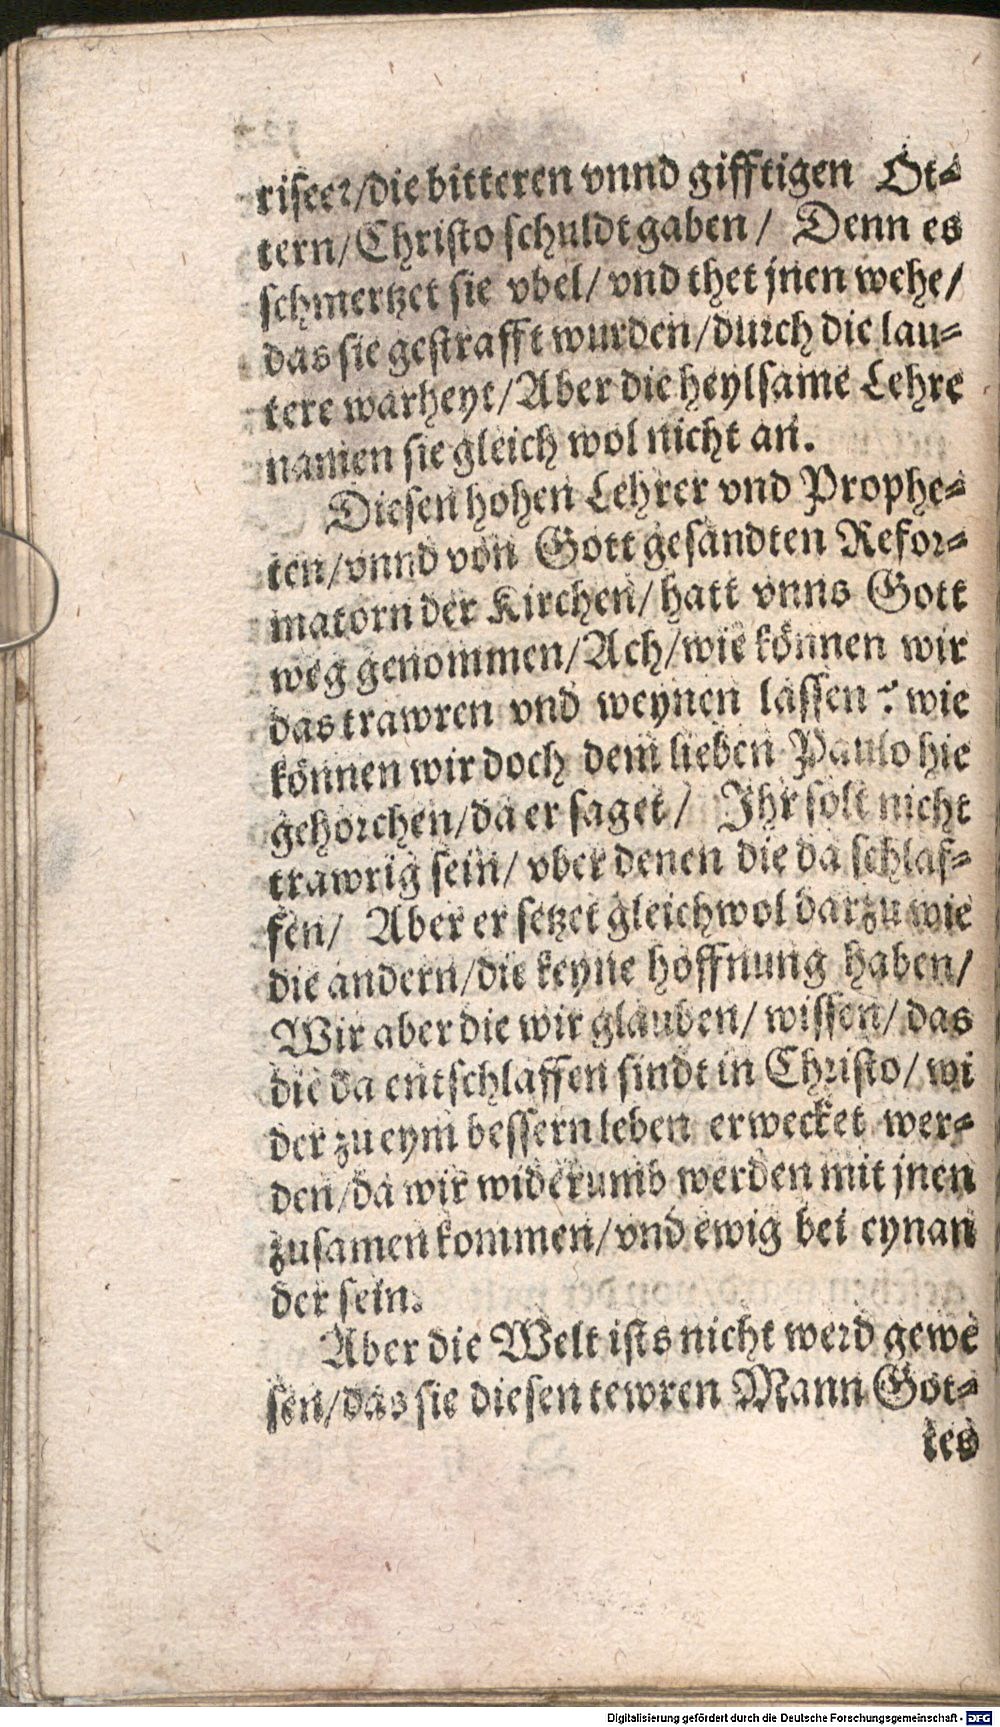 riseer/die bitteren vnnd gifftigen Ot-
tern/Christo schuldt gaben/ Denn es
schmertzet sie vbel/ vnd thet jnen wehe/
das sie gestrafft wurden/durch die lau-
tere warheyt/Aber die heylsame Lehre
namen sie gleich wol nicht an.
Diesen hohen Lehrer vnd Prophe-
ten/vnnd von Gott gesandten Refor-
matorn der Kirchen/ hatt vnns Gott
weg genommen/Ach/wie können wir
das trawren vnd weynen lassen? wie
können wir doch dem lieben Paulo hie
gehorchen/da er saget/ Ihr solt nicht
trawrig sein/ vber denen die da schlaf-
fen/ Aber er setzet gleichwol darzu wie
die andern/die keyne hoffnung haben/
Wir aber die wir glauben/ wissen/ das
die da entschlaffen sindt in Christo/ wi
der zu eym bessern leben erwecket wer-
den/da wir widerumb werden mit jnen
zusamen kommen/vnd ewig bei eynan
der sein.
Aber die Welt ists nicht werd gewe
sen/das sie diesen tewren Mann Got-
tes
Digitalisierung gefördert durch die Deutsche Forschungsgemeinschaft - DFG